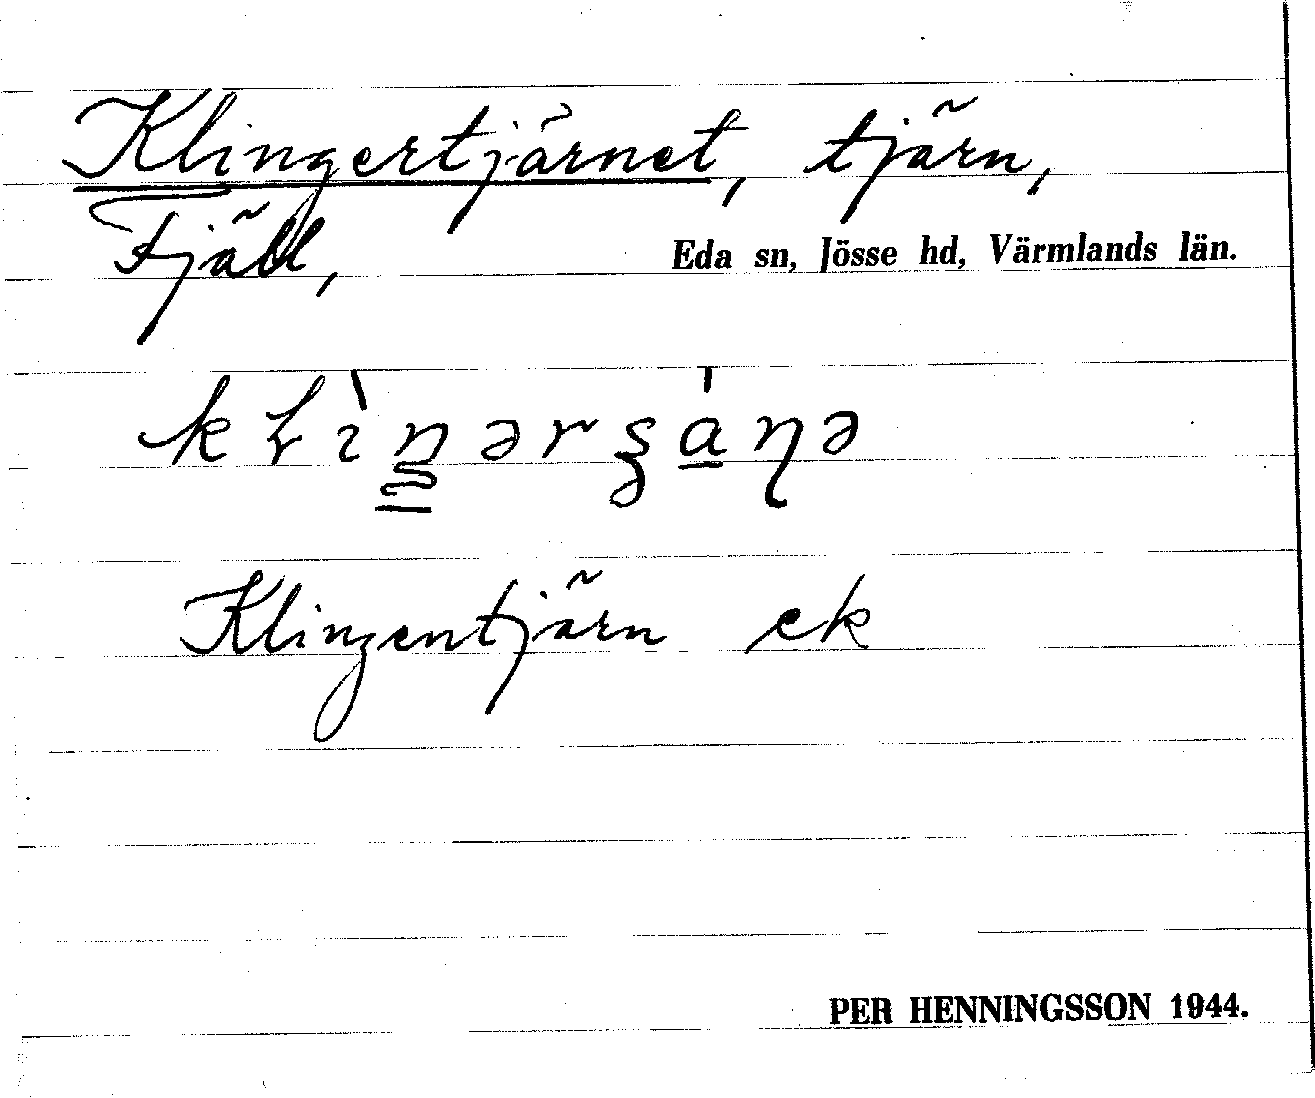 Klingertjärnet, tjärn,
Fjäll, Eda sn, Jösse hd, Värmlands län.
Klingentjärn ek
PER HENNINGSSON 1944.